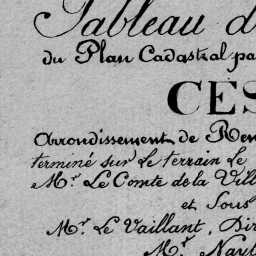 Tableau d
du Plan Cadastral pa
CES
Arrondissement de Ren
terminé sur le terrain le
Mr. Le Comte de la Vill
et sous
Mr. Le Vaillant, Dir
Mr. Nayl